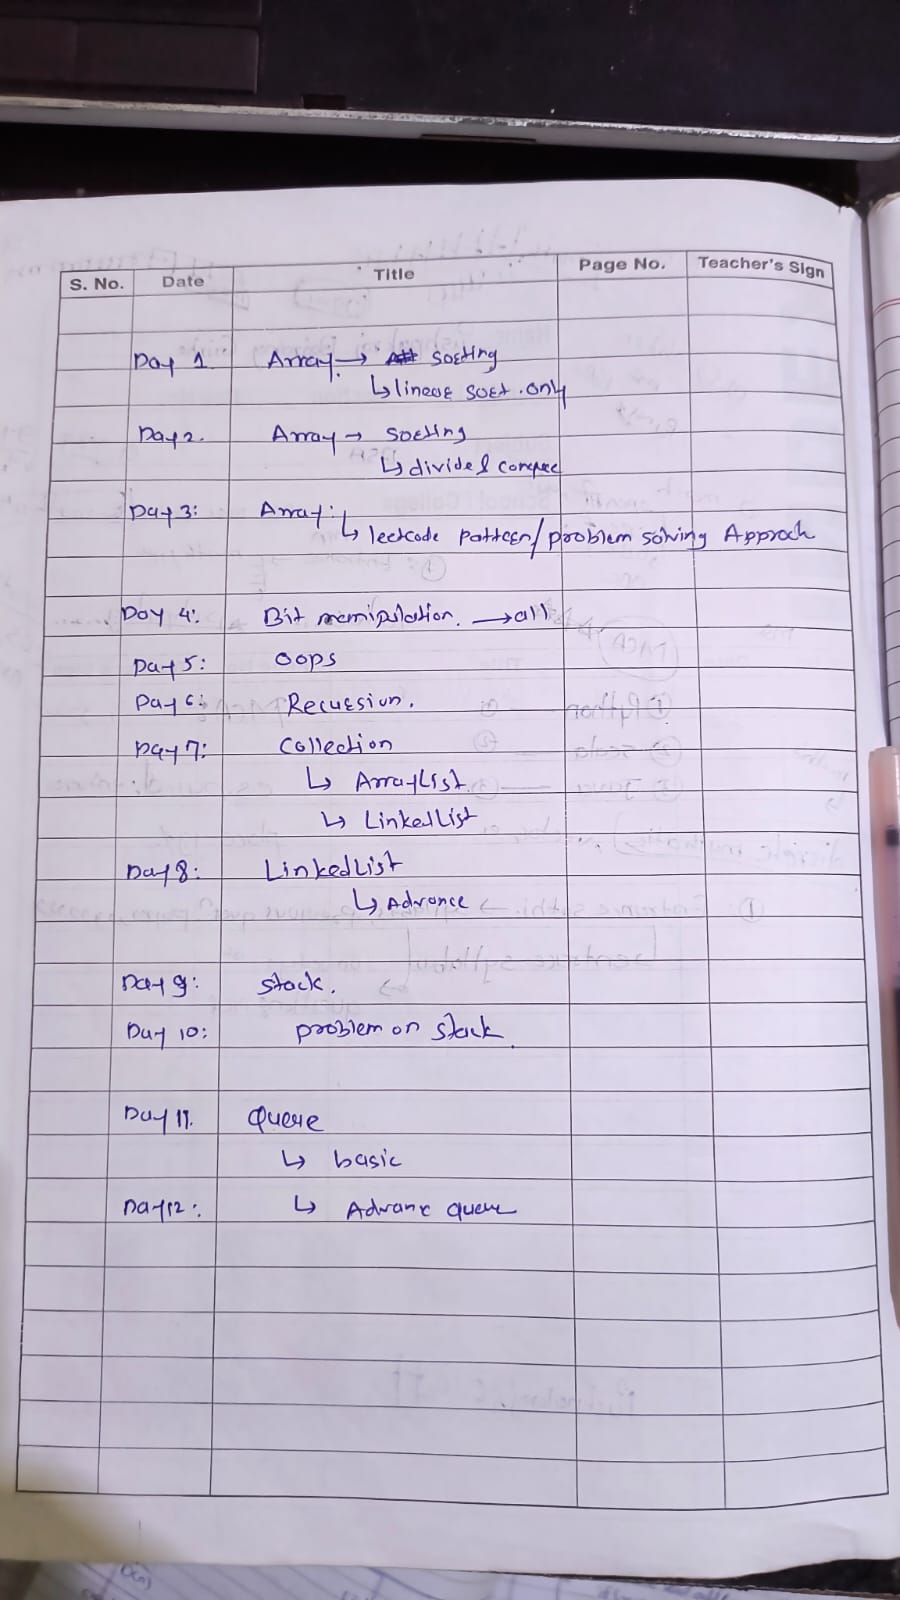 S. No. Date Title Page No. Teacher's Sign
Day 1 Array → sorting
↳ linear sort only
Day 2. Array → sorting
↳ divide & conquer
Day 3: Array:
↳ leetcode pattern/problem solving Approch
Day 4: Bit manipulation. → all
Day 5: OOps
Day 6: Recursion.
Day 7: Collection
↳ ArrayList
↳ LinkedList
Day 8: LinkedList
↳ Advance
Day 9: Stack.
Day 10: problem on stack
Day 11. Queue
↳ basic
Day 12: ↳ Advanc queue